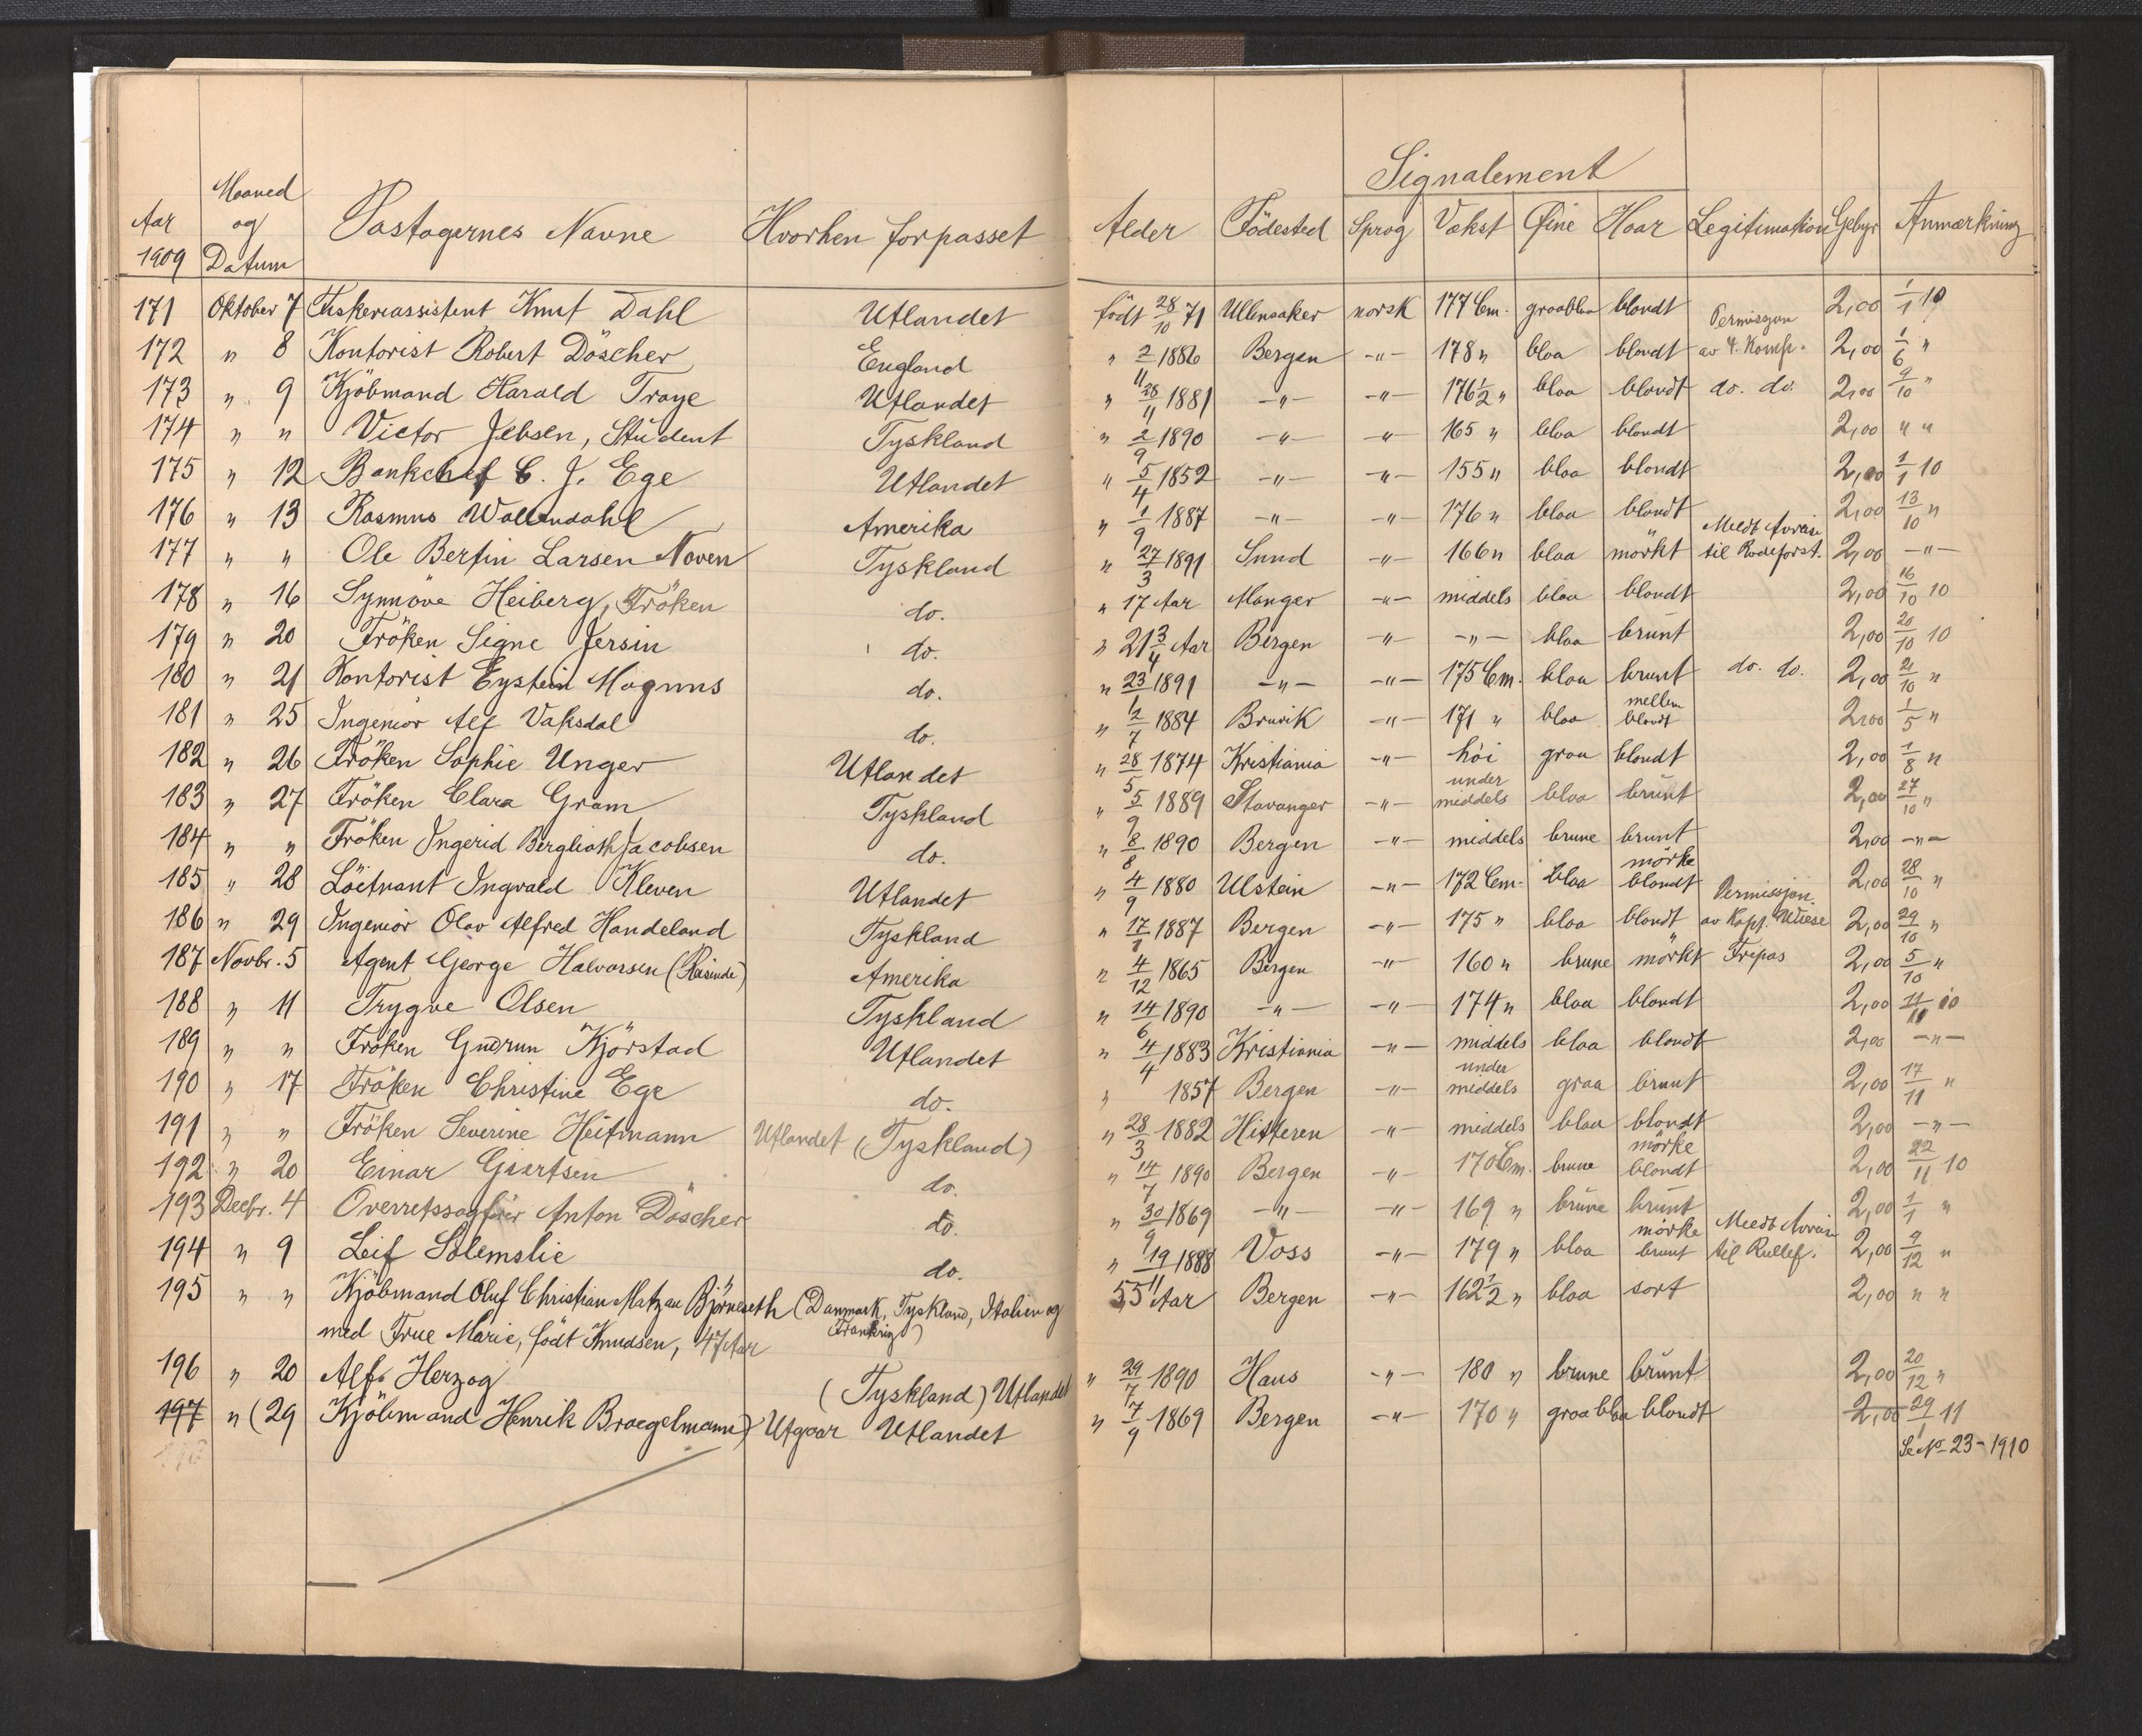 Signalement
Aar 1909 Maaned og Datum Pastagernes Navne Hvorhen forpasset Alder Födested Sprog Vækst Øine Haar Legitimation Gebyr Anmærkning
171 Oktober 7 Fiskeriassistent Knut Dahl Utlandet födt 28/10 71 Ullensaker norsk 177 Cm. graablaa blondt 2,00 1/1 10
172 " 8 Kontorist Robert Döscher England " 2/11 1886 Bergen -"- 178 " blaa blondt Permisjon av 4. Komp. 2,00 1/6 "
173 " 9 Kjöbmand Harald Traye Utlandet " 28/11 1881 -"- -"- 176 1/2 " blaa blondt do. do. 2,00 9/10 "
174 " " Victor Jebsen, Student Tyskland " 2/9 1890 -"- -"- 165 " blaa blondt 2,00 " "
175 " 12 Bankchef C. J. Ege Utlandet " 5/4 1852 -"- -"- 155 " blaa blondt 2,00 1/1 10
176 " 13 Rasmus Wallendahl Amerika " 1/9 1887 -"- -"- 176 " blaa blondt 2,00 13/10 "
177 " " Ole Bertin Larsen Noven Tyskland " 27/3 1891 Sund -"- 166 " blaa mörkt Meldt til Rodeforst. 2,00 -"-
178 " 16 Synnöve Heiberg, Fröken do. " 17 Aar Manger -"- middels blaa blondt 2,00 16/10 10
179 " 20 Fröken Signe Jersin do. " 21 3/4 Aar Bergen -"- -"- blaa brunt 2,00 20/10 10
180 " 21 Kontorist Eystein Magnus do. " 23/1 1891 -"- -"- 175 Cm. blaa brunt do. do. 2,00 21/10 "
181 " 25 Ingeniör Alf Vaksdal do. " 2/7 1884 Bruvik -"- 171 " blaa mellem blondt 2,00 1/5 "
182 " 26 Fröken Sophie Unger Utlandet " 28/5 1874 Kristiania -"- höi graa blondt 2,00 1/8 "
183 " 27 Fröken Clara Gram Tyskland " 5/9 1889 Stavanger -"- under middels blaa brunt 2,00 27/10 "
184 " " Fröken Ingerid Berglioth Jacobsen do. " 8/8 1890 Bergen -"- middels brune brunt 2,00 -"-
185 " 28 Löitnant Ingvald Kleven Utlandet " 4/9 1880 Ulstein -"- 172 Cm. blaa mörke blondt 2,00 28/10 "
186 " 29 Ingeniör Olav Alfred Handeland Tyskland " 17/1 1887 Bergen -"- 175 " blaa blondt Permisjon. av Kapt. Wiese 2,00 29/10 "
187 Novbr. 5 Agent George Halvorsen Amerika " 4/12 1865 Bergen -"- 160 " brune mörkt Fripas 2,00 5/10 "
188 " 11 Trygve Olsen Tyskland " 14/6 1890 -"- -"- 174 " blaa blondt 2,00 11/11 10
189 " " Fröken Gudrun Kjörstad Utlandet " 4/4 1883 Kristiania -"- middels blaa blondt 2,00 -"-
190 " 17 Fröken Christine Ege do. " 1857 Bergen -"- under middels graa brunt 2,00 17/11 "
191 " " Fröken Severine Heitmann Utlandet (Tyskland) " 28/3 1882 Hitteren -"- middels blaa blondt 2,00 -"-
192 " 20 Einar Giertsen " do. " 14/7 1890 Bergen -"- 170 Cm. brune mörke blondt 2,00 22/11 10
193 Decbr. 4 Overretssagförer Anton Döscher do. " 30/9 1869 -"- -"- 169 " brune brunt 2,00 1/1 "
194 " 9 Leif Solemslie do. " 19/11 1888 Voss -"- 179 " blaa mörke brunt Meldt til Rullef. 2,00 9/12 "
195 " " Kjöbmand Oluf Christian Matzau Björneseth (Danmark, Tyskland, Italien og Frankrig) 55 Aar Bergen -"- 162 1/2 " blaa sort 2,00 " "
med Frue Marie, födt Knudsen, 47 Aar
196 " 20 Alf Herzog (Tyskland) Utlandet " 29/7 1890 Haus -"- 180 " brune brunt 2,00 20/12 "
197 " (29 Kjöbmand Henrik Braegelmann) Utgaar Utlandet " 7/9 1869 Bergen -"- 170 " graablaa blondt 2,00 29/1 11
Se No 23 - 1910